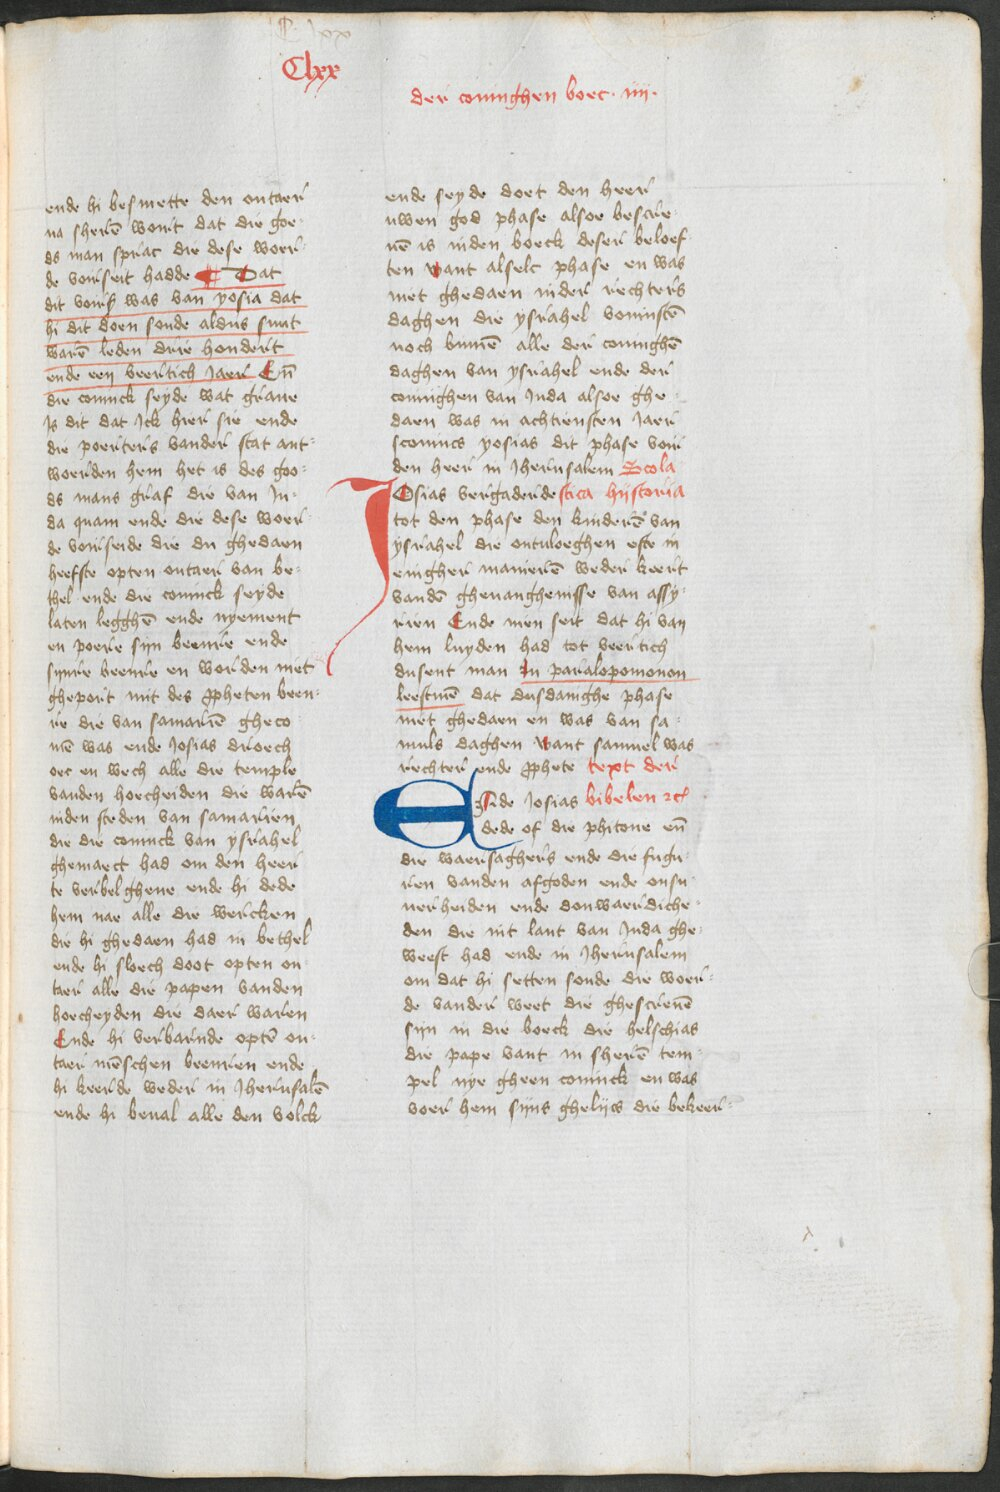 Clxx
Clxx
der coninghen boec · iiii ·
ende hi besmette den outaer
na sherē wort dat die goe-
ds man sprac die dese woer-
de vorseit hadde Dat
dit vors was van yosia dat
hi dit doen sonde aldus sint
warē leden drie hondert
ende een veertich Jaer Eñ
die coninck seyde wat graue
Js dit dat Jck hier sie ende
die poerters vander stat ant-
woerden hem het is des goo-
ds mans graf die van Ju-
da quam ende die dese woer-
de vorseide die du ghedaen
heefste opten outaer van be-
thel ende die coninck seyde
laten legghē ende nyement
en poere sijn beenre ende
synre beenre en worden niet
gheport mit des ꝓpheten been-
re die van samariē gheco-
mē was ende Josias droech
oec en wech alle die temple
vanden hoecheiden die warē
inden steden van samarien
die die coninck van ysrahel
ghemaect had om den heer
te verbelghene ende hi dede
hem nae alle die wercken
die hi ghedaen had in bethel
ende hi sloech doot opten ou-
taer alle die papen vanden
hoecheyden die daer waren
Ende hi verbarnde optē ou-
taer mēschen beenren ende
hi keerde weder in Jherusalē
ende hi beual alle den volck
ende seyde doet den heer
uwen god phase alsoe bescre-
uē is inden boeck deser beloef-
ten want alselc phase en was
niet ghedaen inder rechters
daghen die ysrahel vonnistē
noch binnē alle der coninghē
daghen van ysrahel ende der
coninghen van Juda alsoe ghe-
daen was in achtiensten Jaer
sconincs yosias dit phase voir
den heer in Jherusalem Scola
JOsias vergaderde stica hijstoria
tot den phase den kinderē van
ysrahel die ontuloeghen efte in
enigher manierē weder keert
vandē gheuanghenisse van assy-
rien Ende men seit dat hi van
hem luyden had tot veertich
dusent man In paralopomonon
leestmē dat dusdanighe phase
niet ghedaen en was van sa-
muls daghen want samuel was
rechter ende ꝓphete text der
Ende Josias bibelen ⁊cͬ
dede of die phitone eñ
die waersaghers ende die fugu-
ren vanden afgoden ende onsu-
uerheiden ende donwaerdiche-
den die int lant van Juda ghe-
weest had ende in Jherusalem
om dat hi setten sonde die woer-
de vander weet die ghescreuē
sijn in die boeck die helchias
die pape vant in sherē tem-
pel nye gheen coninck en was
voer hem sijns ghelijcs die bekeer-